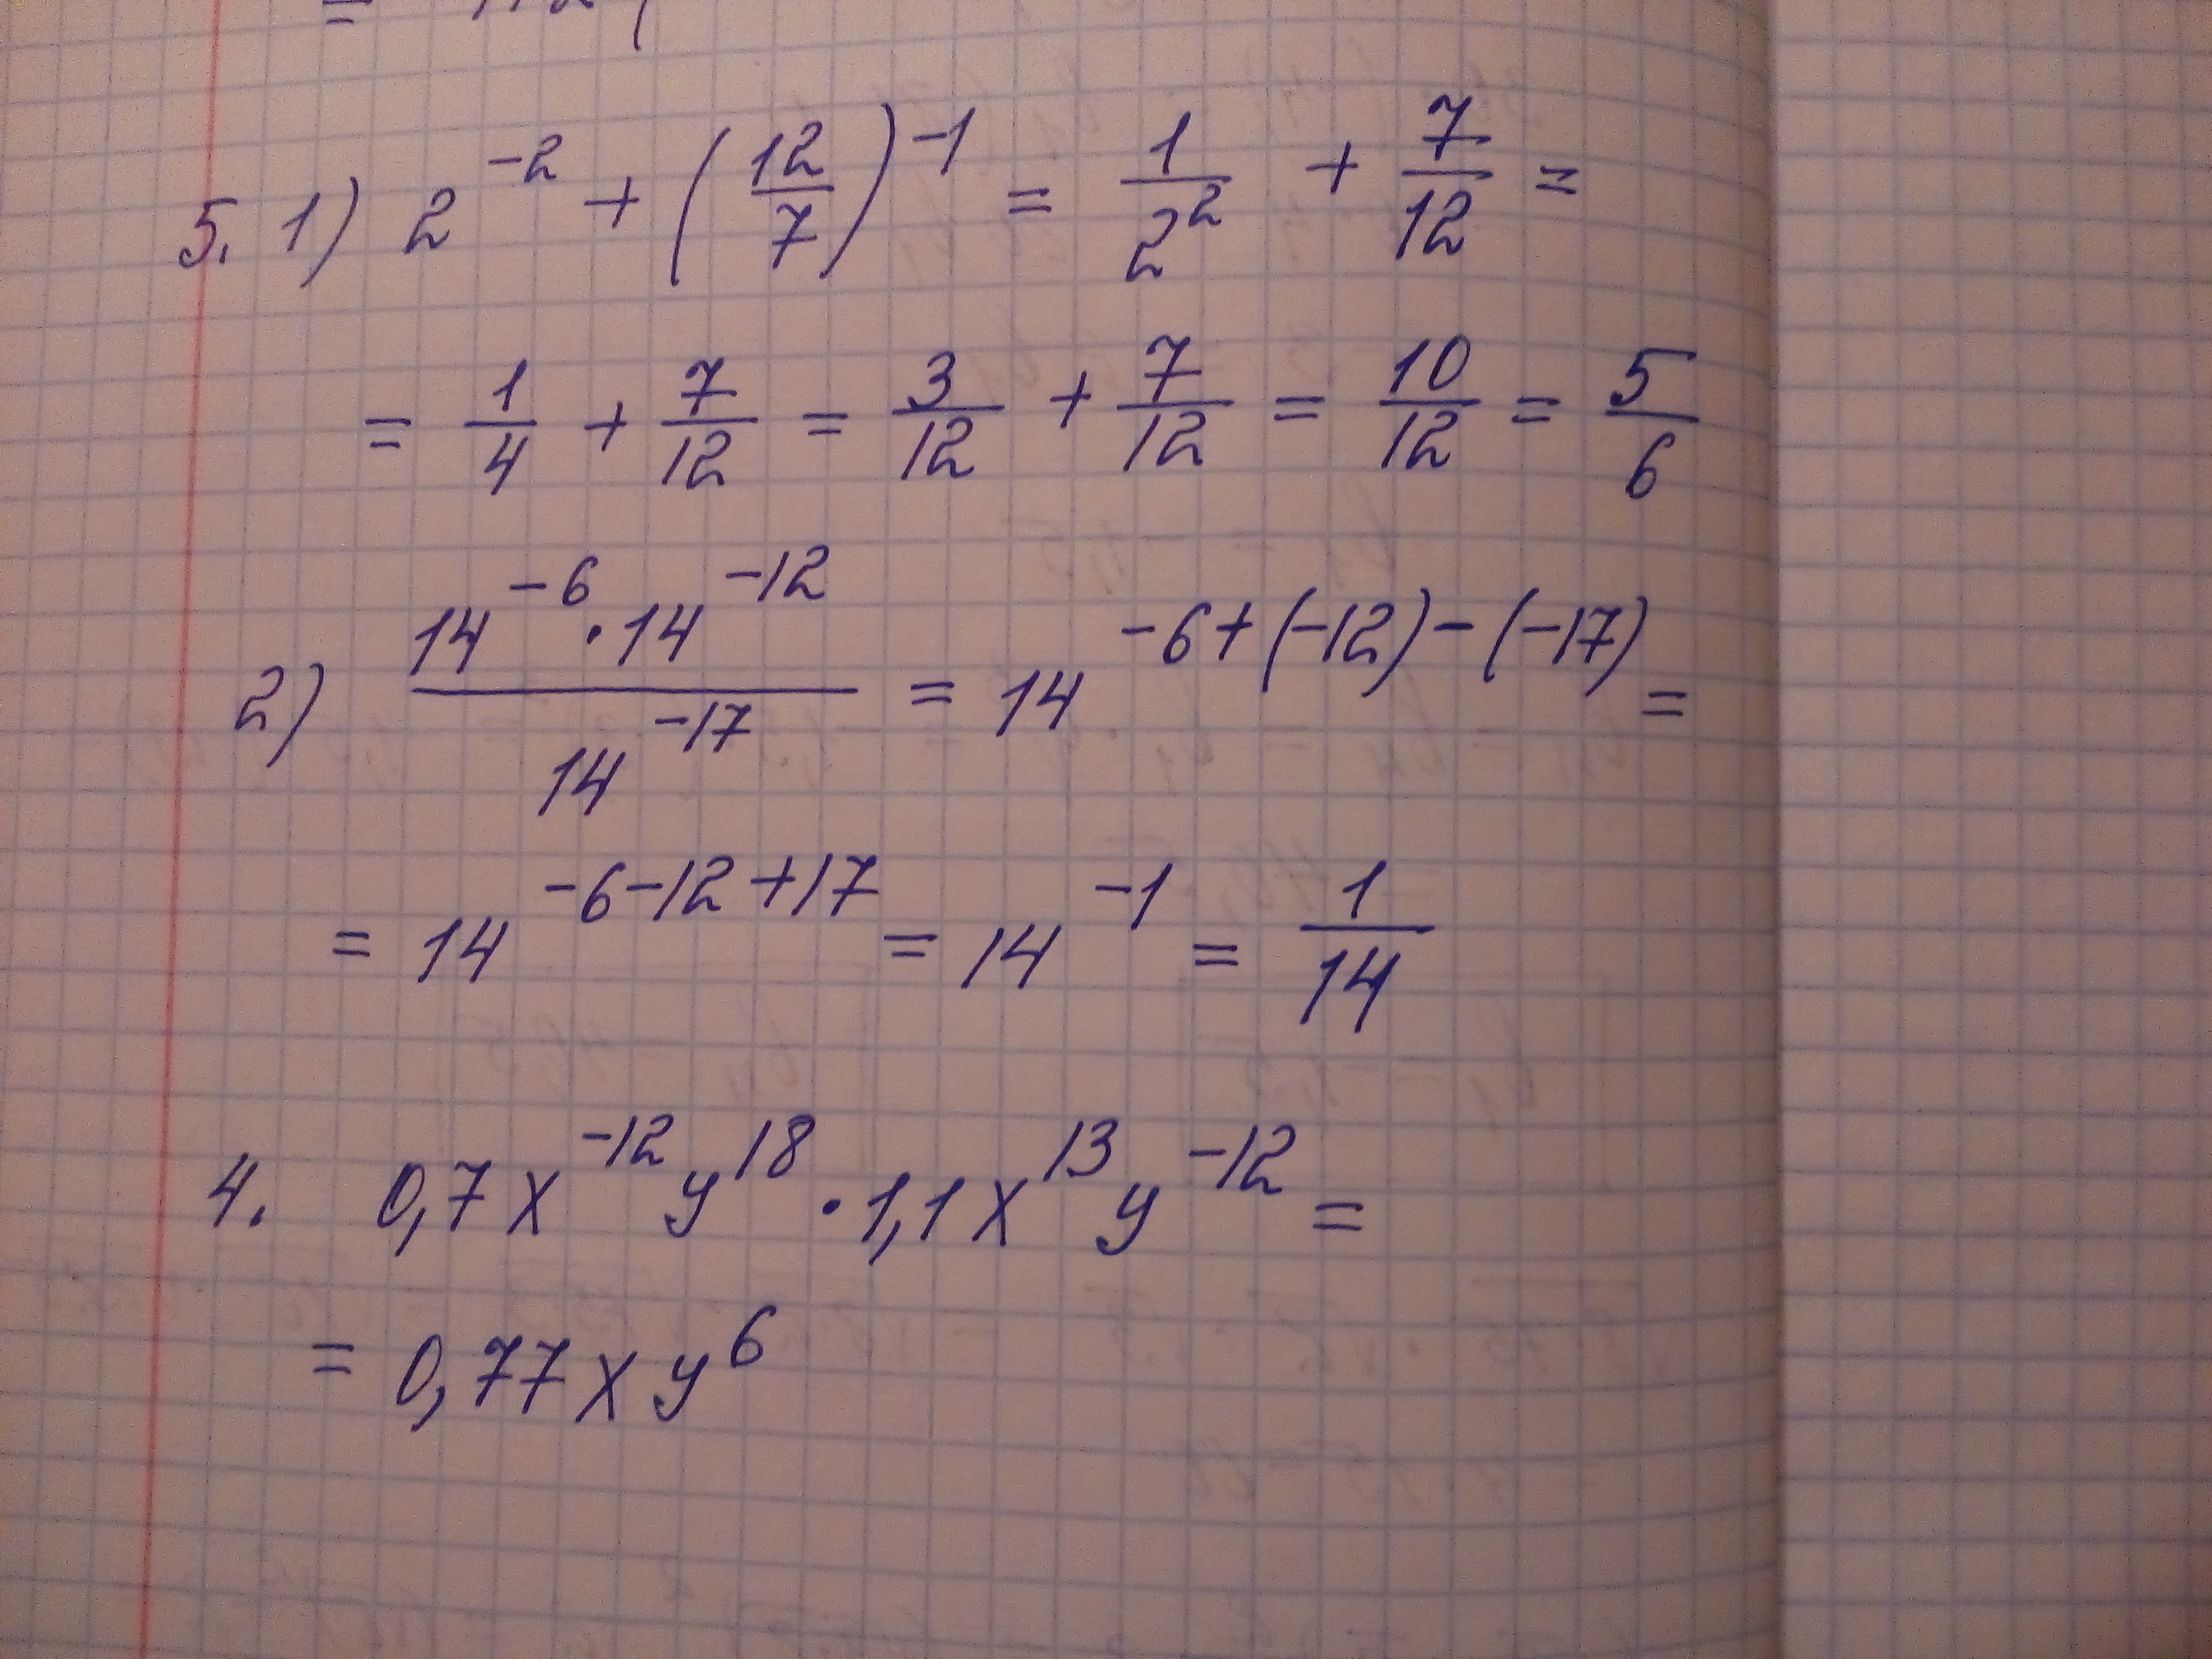 5. 1) 2^{-2} + (12/7)^{-1} = 1/2^2 + 7/12 =
= 1/4 + 7/12 = 3/12 + 7/12 = 10/12 = 5/6
2) 14^{-6} · 14^{-12} / 14^{-17} = 14^{-6+(-12)-(-17)} =
= 14^{-6-12+17} = 14^{-1} = 1/14
4. 0,7x^{-12}y^{18} · 1,1x^{13}y^{-12} =
= 0,77xy^6